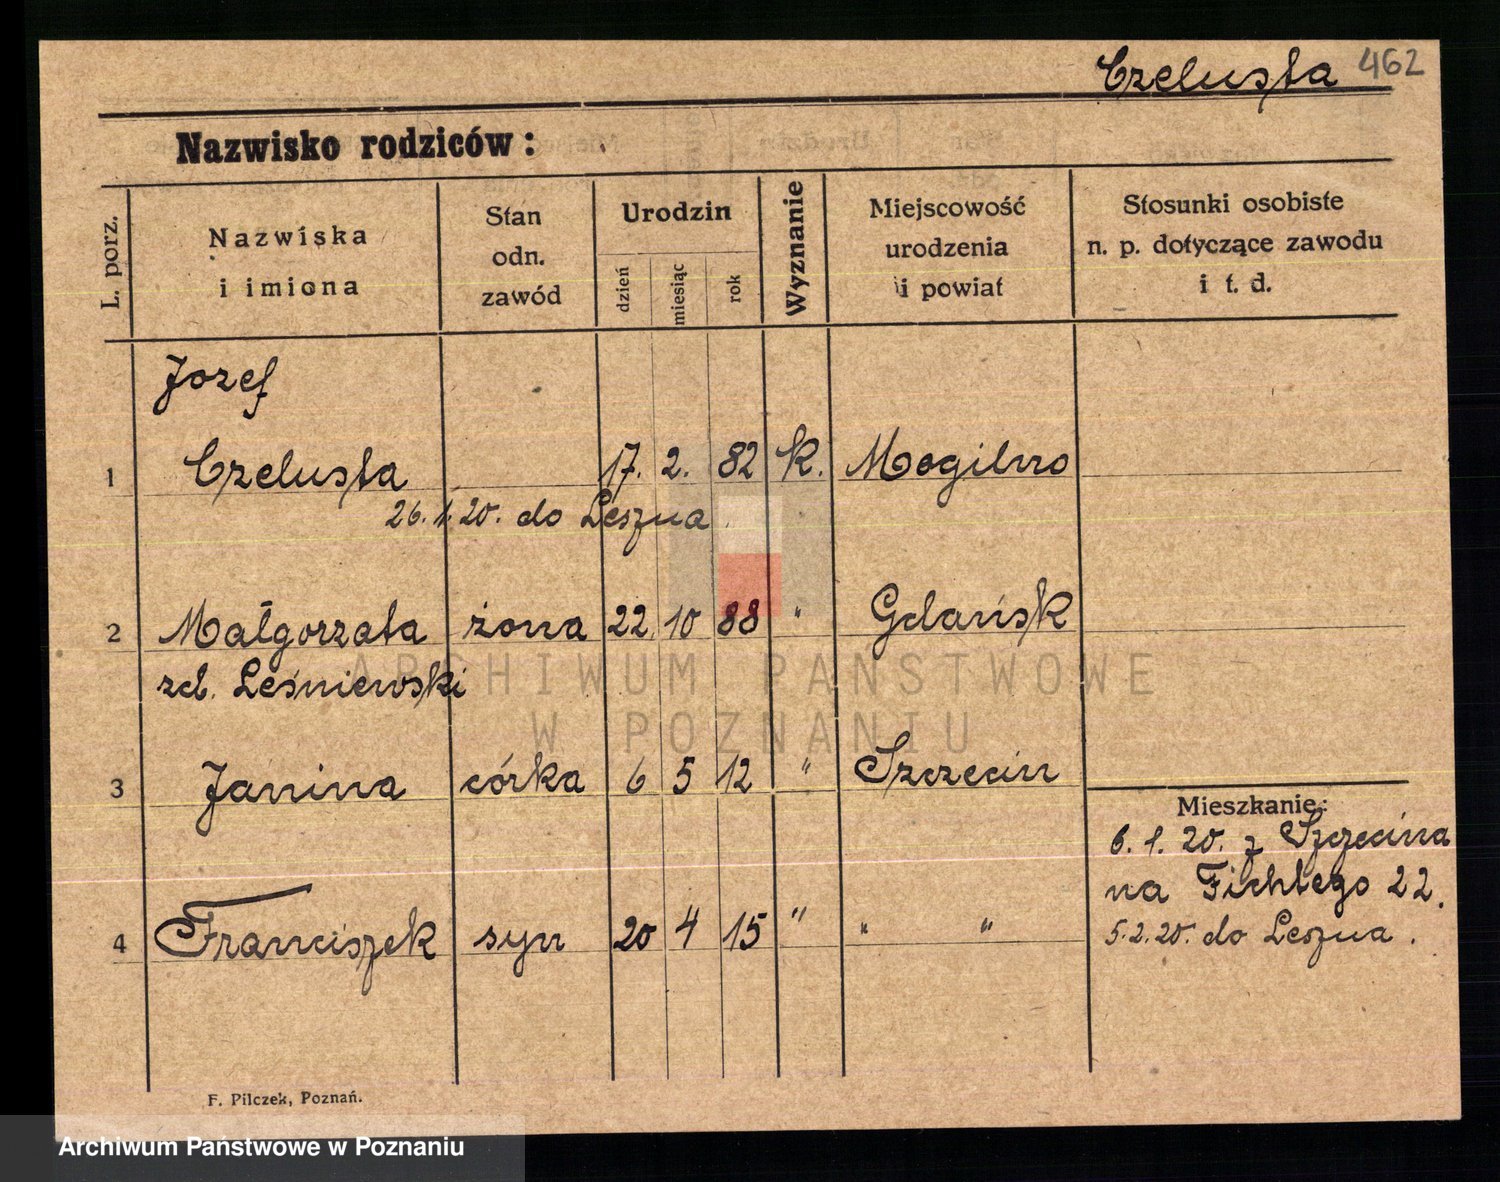 Czelusta 462
Nazwisko rodziców:
L. porz.
Nazwiska
i imiona
Stan
odn.
zawód
Urodzin
dzień
miesiąc
rok
Wyznanie
Miejscowość
urodzenia
i powiat
Stosunki osobiste
n. p. dotyczące zawodu
i t. d.
Jozef
1 Czelusta 17. 2. 82 k. Mogilno
26.1.20. do Leszna
2 Małgorzata żona 22. 10 88 " Gdańsk
zd. Leśniewski
ARCHIWUM PAŃSTWOWE
W POZNANIU
3 Janina córka 6 5 12 " Szczecin
Mieszkanie:
6. 1. 20. z Szczecina
na Fichtego 22.
4 Franciszek syn 20 4 15 " " "
5.2.20. do Leszna.
F. Pilczek, Poznań.
Archiwum Państwowe w Poznaniu